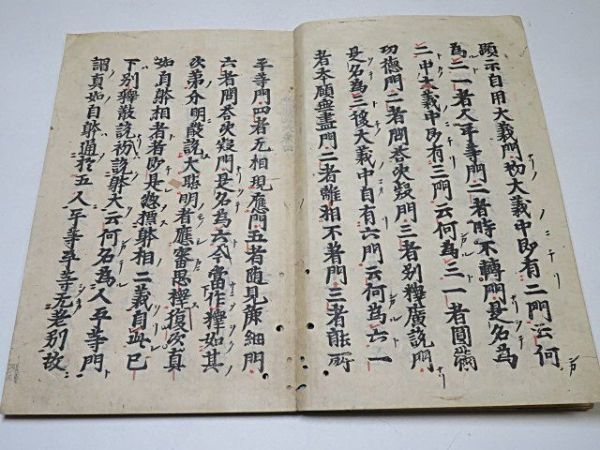 顯示自用大義門初大義中即有二門云何
為二一者人平等門二者時不轉門是名為
二中大義中即有三門云何為三一者圓滿
功德門二者問荅决疑門三者別釋廣說門
是名為三後大義中自有六門云何為六一
者本願無盡門二者離相不著門三者能所
平等門四者无相現應門五者随見麁細門
六者問荅决疑門是名為六今當作釋如其
次第分明散說大聰明者應審思擇復次真
如自躰相者者即是惣摽躰相二義自此已
下別釋散說初說躰大云何名為人平等門
謂真如自躰通於五人平等平等无差別故